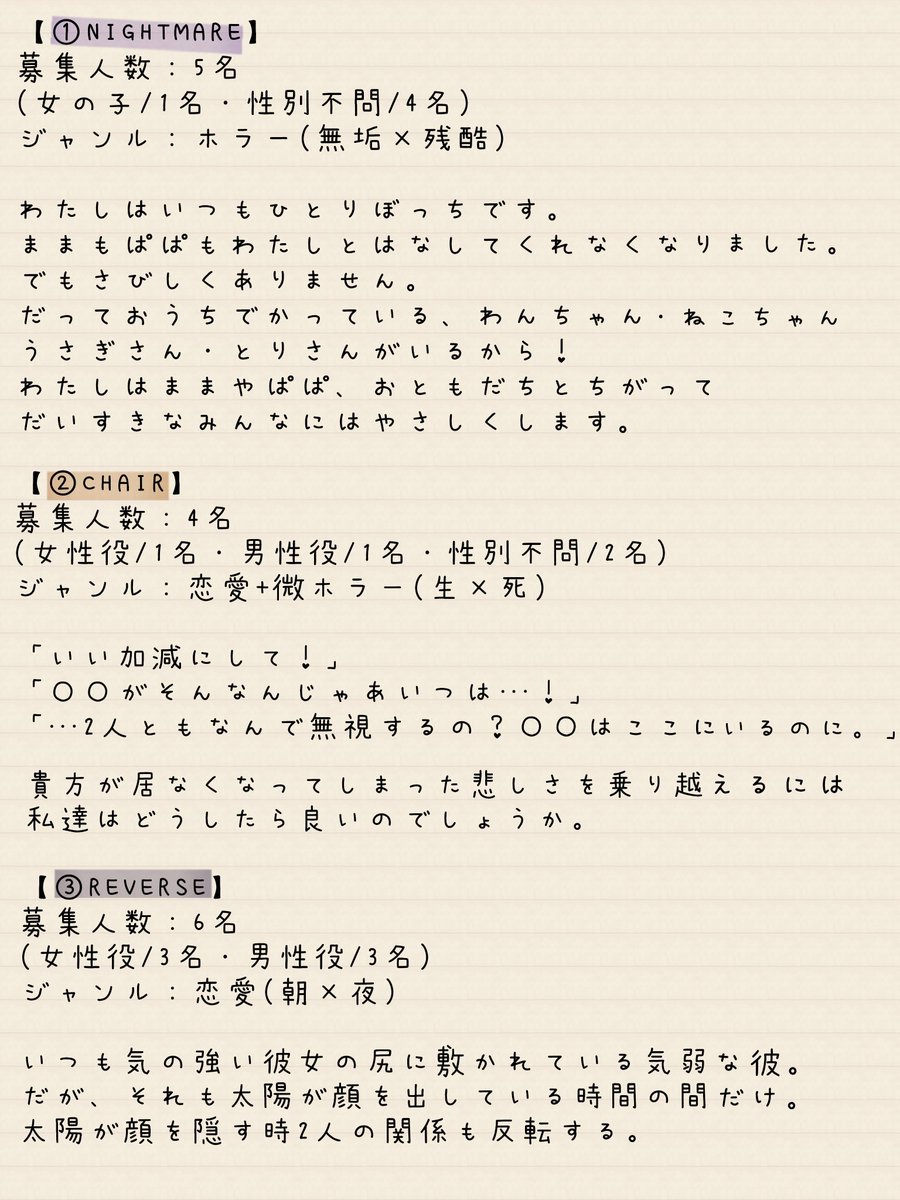 【①NIGHTMARE】
募集人数:5名
(女の子/1名・性別不問/4名)
ジャンル:ホラー(無垢×残酷)
わたしはいつもひとりぼっちです。
ままもぱぱもわたしとはなしてくれなくなりました。
でもさびしくありません。
だっておうちでかっている、わんちゃん・ねこちゃん
うさぎさん・とりさんがいるから!
わたしはままやぱぱ、おともだちとちがって
だいすきなみんなにはやさしくします。
【②CHAIR】
募集人数:4名
(女性役/1名・男性役/1名・性別不問/2名)
ジャンル:恋愛+微ホラー(生×死)
「いい加減にして!」
「〇〇がそんなんじゃあいつは…!」
「…2人ともなんで無視するの?〇〇はここにいるのに。」
貴方が居なくなってしまった悲しさを乗り越えるには
私達はどうしたら良いのでしょうか。
【③REVERSE】
募集人数:6名
(女性役/3名・男性役/3名)
ジャンル:恋愛(朝×夜)
いつも気の強い彼女の尻に敷かれている気弱な彼。
だが、それも太陽が顔を出している時間の間だけ。
太陽が顔を隠す時2人の関係も反転する。